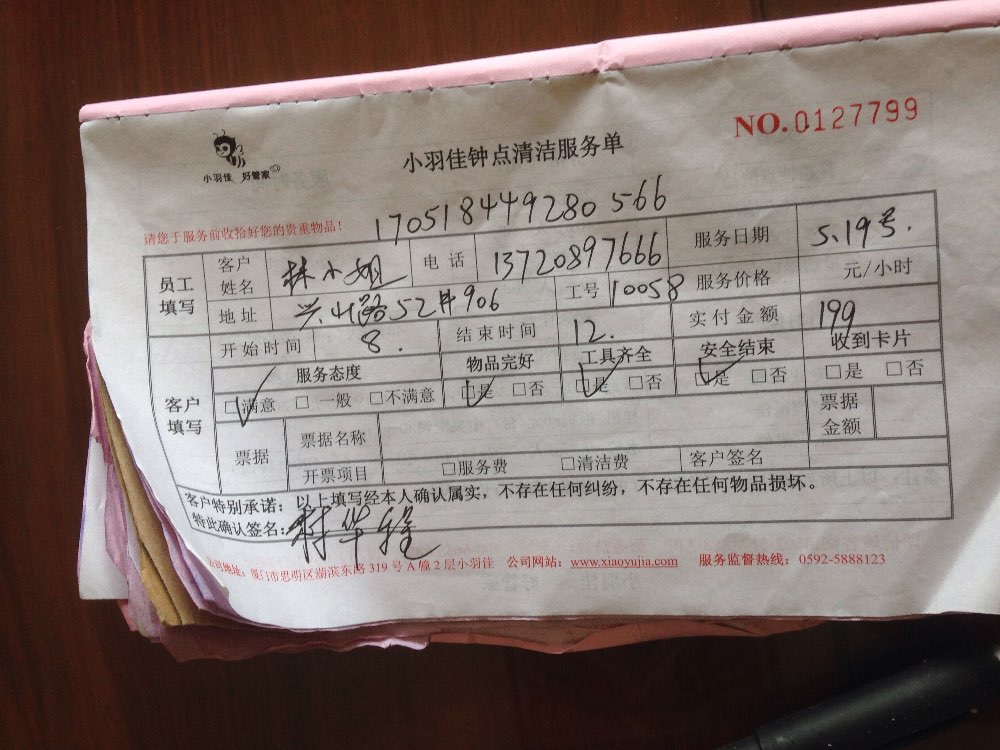 NO.0127799
小羽佳 好管家
小羽佳钟点清洁服务单
请您于服务前收拾好您的贵重物品!
170518449280566
员工填写 客户姓名 林小姐 电话 13720897666 服务日期 5.19号.
地址 兴山路52#906 工号 10058 服务价格 元/小时
客户填写 开始时间 8. 结束时间 12. 实付金额 199
服务态度 物品完好 工具齐全 安全结束 收到卡片
☑满意 □一般 □不满意 ☑是 □否 ☑是 □否 ☑是 □否 □是 □否
票据 票据名称 票据金额
开票项目 □服务费 □清洁费 客户签名
客户特别承诺：以上填写经本人确认属实，不存在任何纠纷，不存在任何物品损坏。
特此确认签名：林华
公司地址：厦门市思明区湖滨东路319号A幢2层小羽佳 公司网站：www.xiaoyujia.com 服务监督热线：0592-5888123